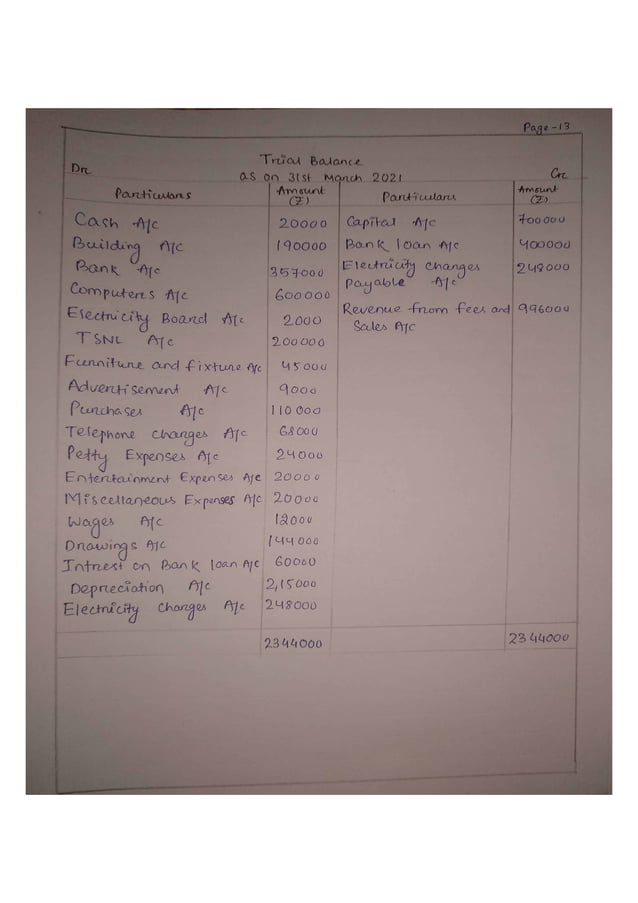 Page-13
Trial Balance
as on 31st March 2021
Dr Cr
Particulars Amount (₹) Particulars Amount (₹)
Cash A/c 20000 Capital A/c 700000
Building A/c 190000 Bank loan A/c 400000
Bank A/c 357000 Electricity charges 248000
payable A/c
Computers A/c 600000
Electricity Board A/c 2000 Revenue from fees and 996000
Sales A/c
TSNL A/c 200000
Furniture and fixture A/c 45000
Advertisement A/c 9000
Purchases A/c 110000
Telephone charges A/c 68000
Petty Expenses A/c 24000
Entertainment Expenses A/c 20000
Miscellaneous Expenses A/c 20000
Wages A/c 12000
Drawings A/c 144000
Intrest on Bank loan A/c 60000
Depreciation A/c 2,15000
Electricity Charges A/c 248000
2344000 2344000